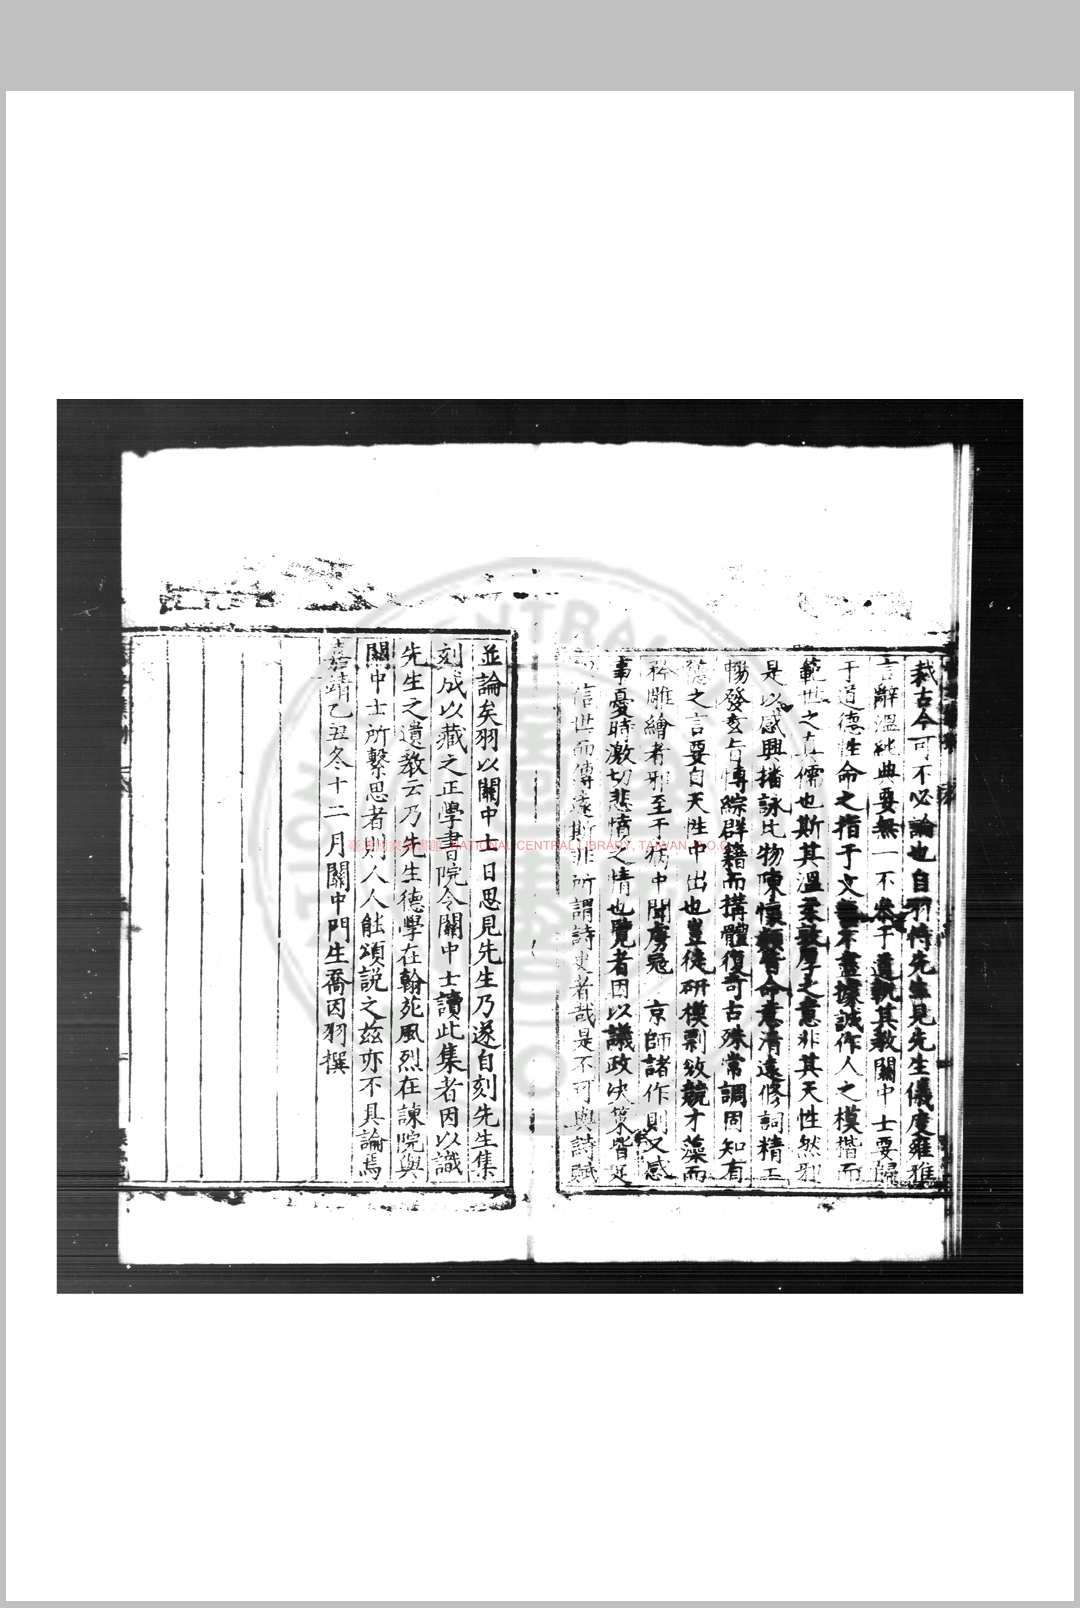 哉古今可不必論也自羽侍先生見先生儀度雍雍
言辭溫純典要無一不于道説其教關中士要歸
于道德性命之指于文不盡據誠作人之模楷而
範世之真儒也斯其溫柔敦厚之意非其天性然邪
是以感興播詠比物陳懷命意清遠修詞精工
暢發玄旨博綜群籍而搆體復奇古殊常調固知有
德之言要自天性中出也豈徒研模剽斂競才藻而
矜雕繪者邪至于病中聞虜寇京師諸作則又感
事憂時激切悲憤之情也覽者因以議政決策皆足
信世而傳遠斯非所謂詩史者哉是不可與詩賦
並論矣羽以關中士日思見先生乃遂自刻先生集
刻成以藏之正學書院令關中士讀此集者因以識
先生之遺教云乃先生德學在翰苑風烈在諫院與
關中士所繫思者則人人能頌説之茲亦不具論焉
嘉靖乙丑冬十二月關中門生喬因羽撰
NATIONAL CENTRAL LIBRARY, TAIWAN, R.O.C